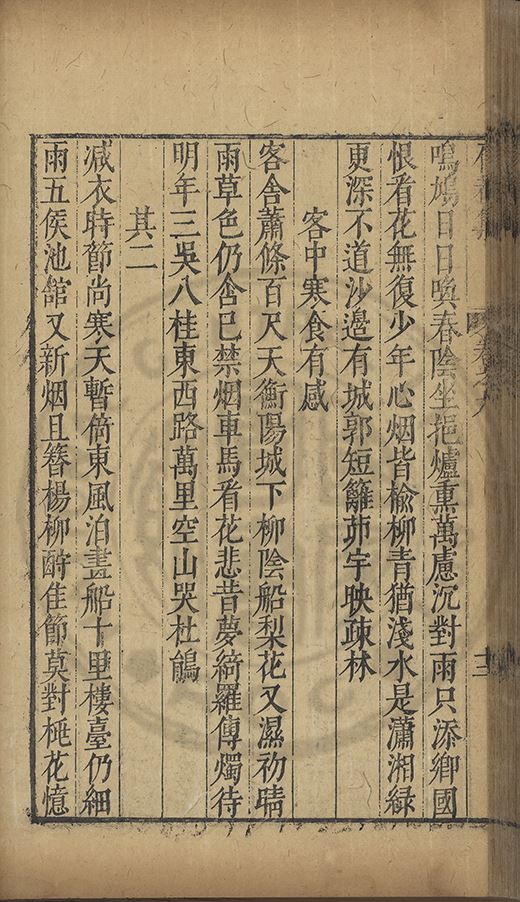 鳴鳩日日喚春陰坐挹爐熏萬慮沉對雨只添鄉國
恨看花無復少年心烟皆榆柳青猶淺水是瀟湘綠
更深不道沙邊有城郭短籬茆宇映疎林
客中寒食有感
客舍蕭條百尺天衡陽城下柳陰船梨花又濕初晴
雨草色仍含已禁烟車馬看花悲昔夢綺羅傳燭待
明年三吳八桂東西路萬里空山哭杜鵑
其二
減衣時節尚寒天暫倚東風泊畫船十里樓臺仍細
雨五侯池館又新烟且簪楊柳酧佳節莫對桃花憶